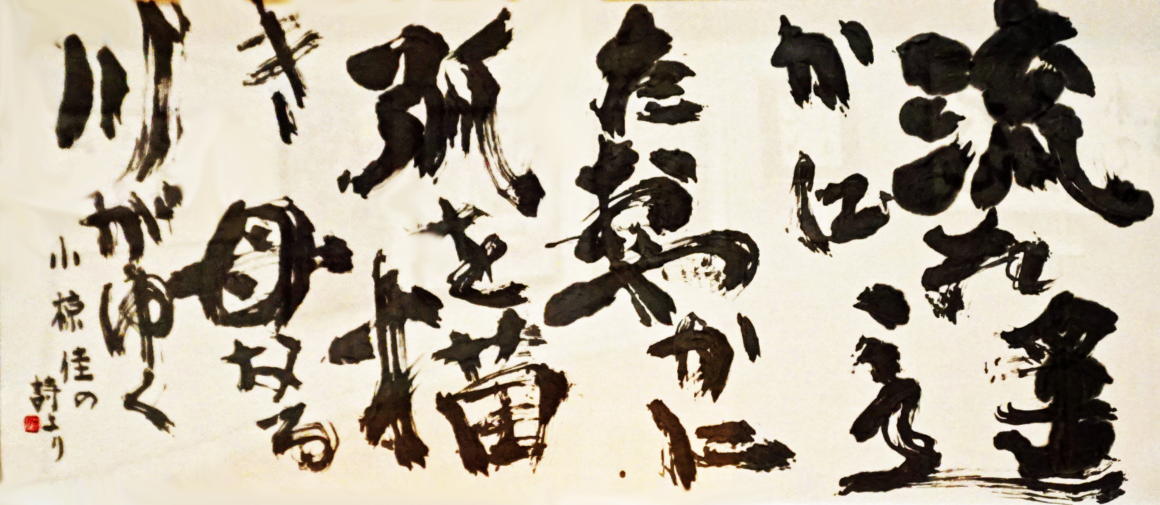 流れ遥
かに
たおやかに
弧を描
き母なる
川がゆく
小椋佳の
詩より